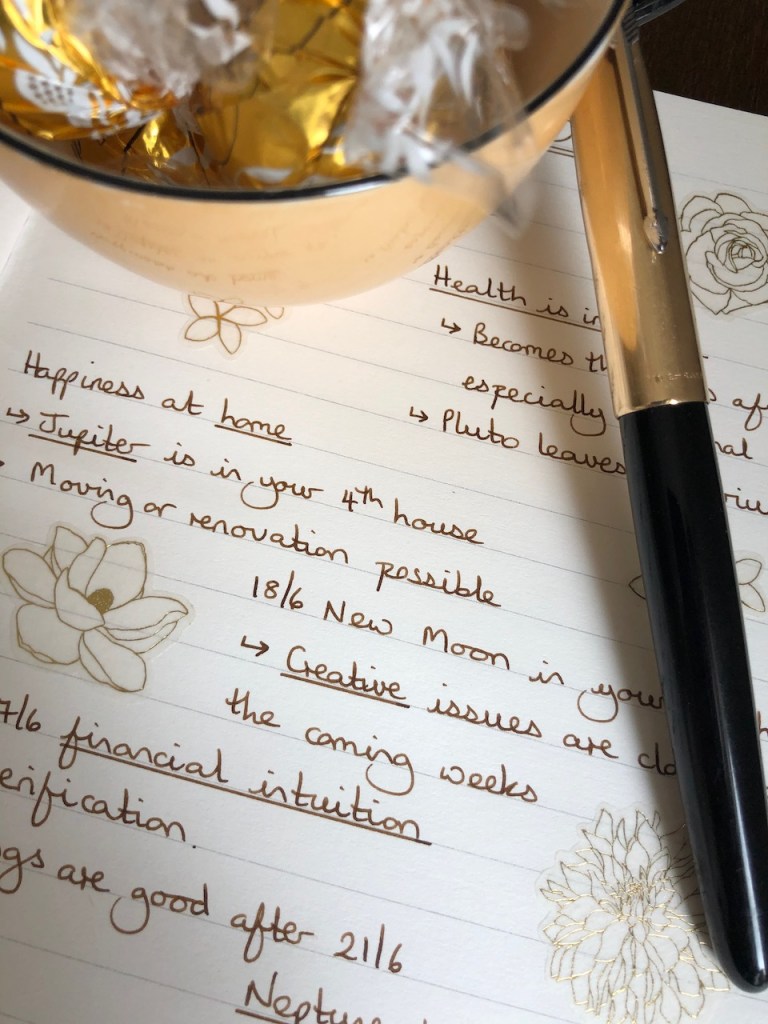 Health is in
↳ Becomes th
especially
↳ Pluto leaves
Happiness at home
↳ Jupiter is in your 4th house
Moving or renovation possible
18/6 New Moon in your
↳ Creative issues are
the coming weeks
7/6 financial intuition
erification.
gs are good after 21/6
Neptun